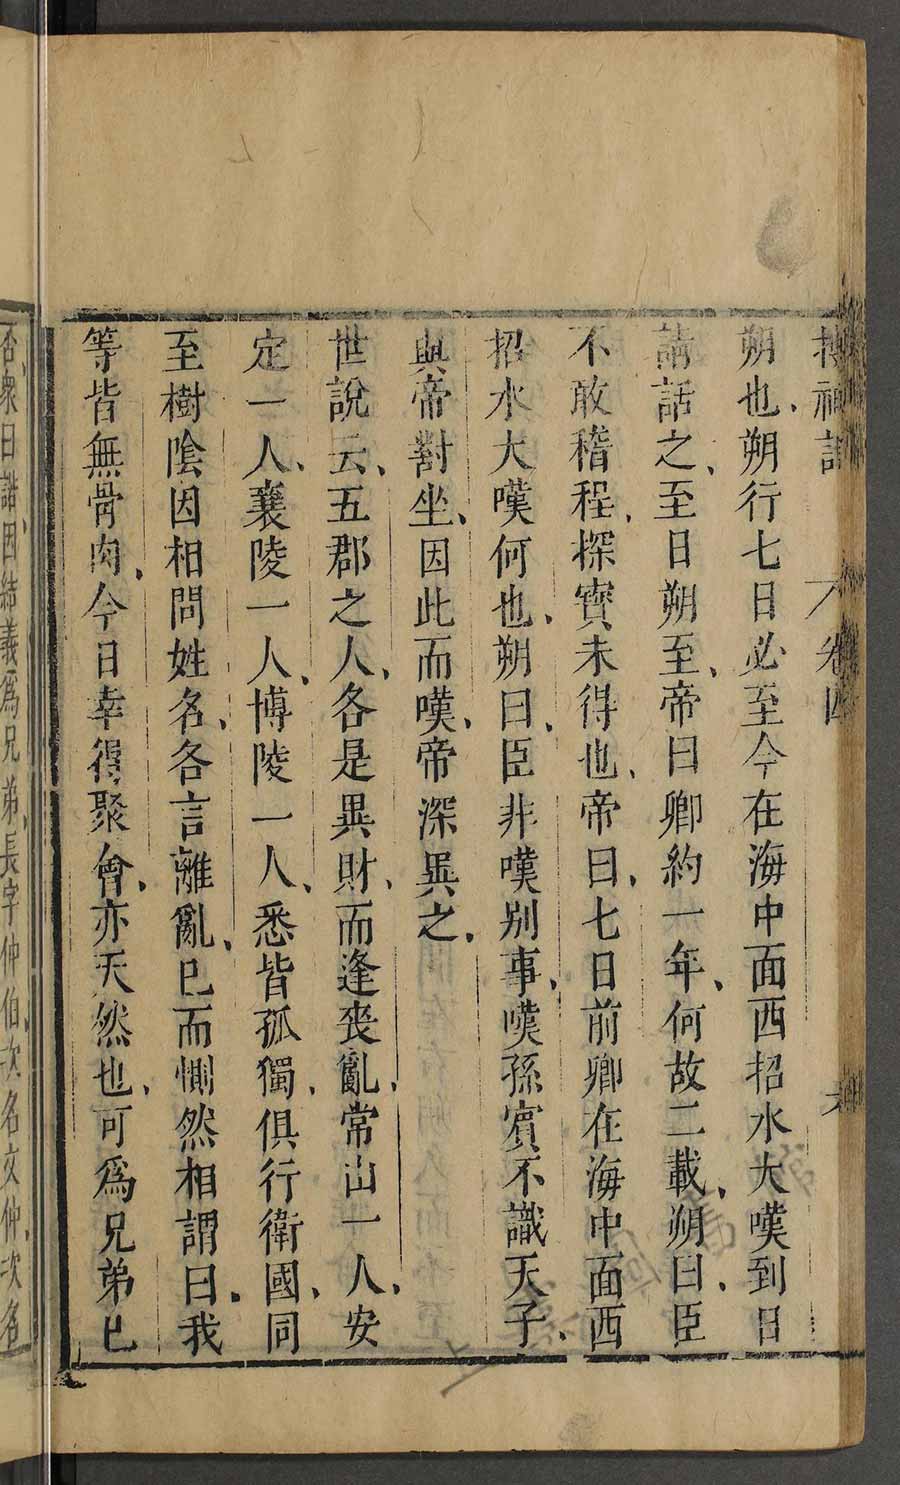 搜神記 卷四 六
朔也朔行七日必至今在海中面西招水大嘆到日
請話之至日朔至帝曰卿約一年何故二載朔曰臣
不敢稽程探寶未得也帝曰七日前卿在海中面西
招水大嘆何也朔曰臣非嘆别事嘆孫賓不識天子
與帝對坐因此而嘆帝深異之
世說云五郡之人各是異財而逢喪亂常山一人安
定一人襄陵一人博陵一人悉皆孤獨俱行衛國同
至樹陰因相問姓名各言離亂已而惻然相謂曰我
等皆無骨肉今日幸得聚會亦天然也可爲兄弟已
否衆曰諾因結義爲兄弟長字仲伯次名文仲次名